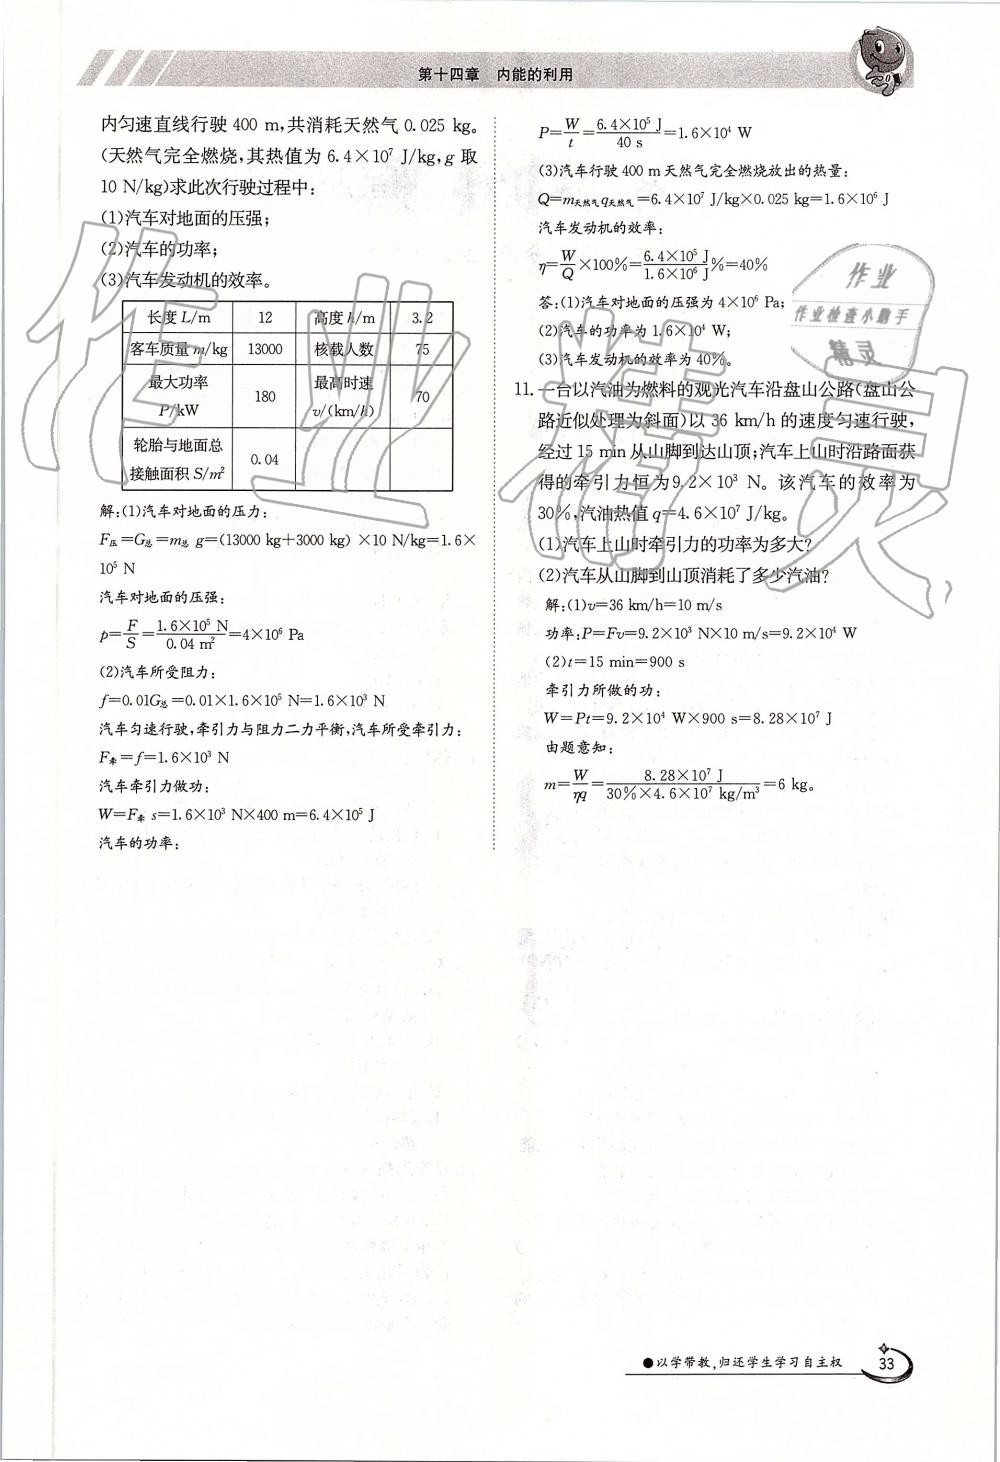 第十四章 内能的利用
内匀速直线行驶 400 m,共消耗天然气 0.025 kg。
(天然气完全燃烧,其热值为 6.4×10⁷ J/kg,g 取
10 N/kg)求此次行驶过程中:
(1)汽车对地面的压强;
(2)汽车的功率;
(3)汽车发动机的效率。
长度 L/m 12 高度 h/m 3.2
客车质量 m/kg 13000 核载人数 75
最大功率 P/kW 180 最高时速 v/(km/h) 70
轮胎与地面总接触面积 S/m² 0.04
解:(1)汽车对地面的压力:
F压=G总=m总 g=(13000 kg+3000 kg) ×10 N/kg=1.6×
10⁵ N
汽车对地面的压强:
p=F/S=1.6×10⁵ N/0.04 m²=4×10⁶ Pa
(2)汽车所受阻力:
f=0.01G总=0.01×1.6×10⁵ N=1.6×10³ N
汽车匀速行驶,牵引力与阻力二力平衡,汽车所受牵引力:
F牵=f=1.6×10³ N
汽车牵引力做功:
W=F牵 s=1.6×10³ N×400 m=6.4×10⁵ J
汽车的功率:
P=W/t=6.4×10⁵ J/40 s=1.6×10⁴ W
(3)汽车行驶 400 m天然气完全燃烧放出的热量:
Q=m天然气q天然气=6.4×10⁷ J/kg×0.025 kg=1.6×10⁶ J
汽车发动机的效率:
η=W/Q×100%=6.4×10⁵ J/1.6×10⁶ J%=40%
答:(1)汽车对地面的压强为 4×10⁶ Pa;
(2)汽车的功率为 1.6×10⁴ W;
(3)汽车发动机的效率为 40%。
11. 一台以汽油为燃料的观光汽车沿盘山公路(盘山公
路近似处理为斜面)以 36 km/h 的速度匀速行驶,
经过 15 min 从山脚到达山顶;汽车上山时沿路面获
得的牵引力恒为 9.2×10³ N。该汽车的效率为
30%,汽油热值 q=4.6×10⁷ J/kg。
(1)汽车上山时牵引力的功率为多大?
(2)汽车从山脚到山顶消耗了多少汽油?
解:(1)v=36 km/h=10 m/s
功率:P=Fv=9.2×10³ N×10 m/s=9.2×10⁴ W
(2)t=15 min=900 s
牵引力所做的功:
W=Pt=9.2×10⁴ W×900 s=8.28×10⁷ J
由题意知:
m=W/ηq=8.28×10⁷ J/30%×4.6×10⁷ kg/m³=6 kg。
作业
作业检查小助手
精灵
作业精灵
●以学带教,归还学生学习自主权 33